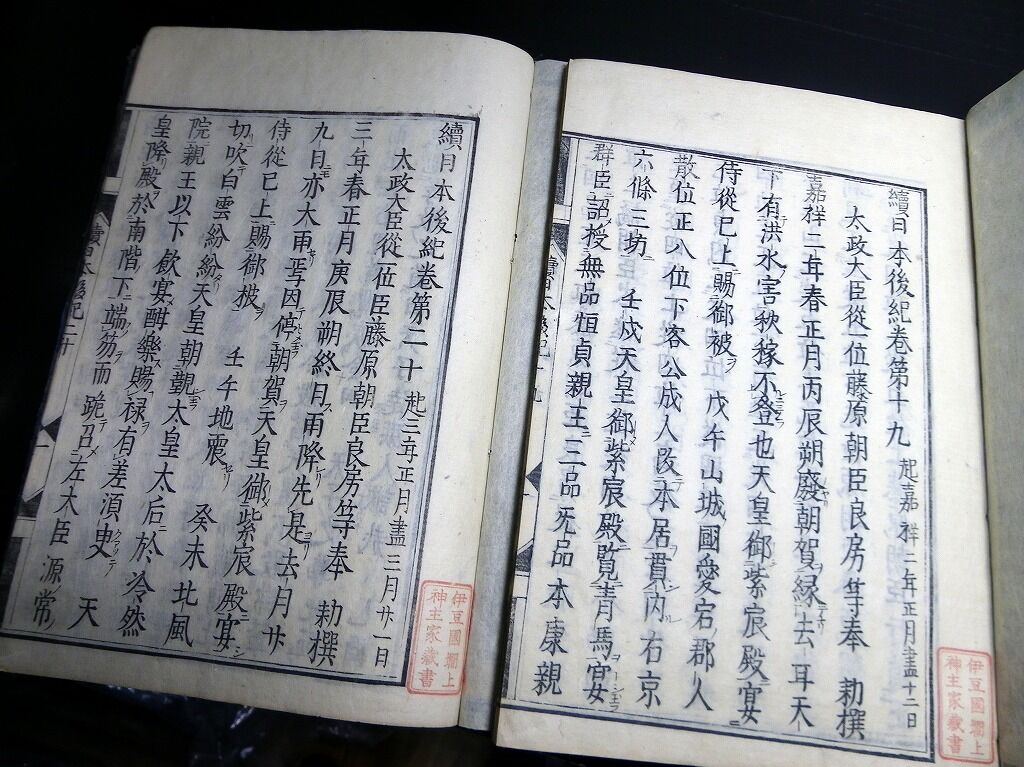 續日本後紀卷第十九 起嘉祥二年正月盡十二日
太政大臣從一位藤原朝臣良房等奉 勅撰
嘉祥二年春正月丙辰朔廢朝賀縁去耳天
下有洪水害秋稼不登也天皇御紫宸殿宴
侍從已上賜御被 戊午山城國愛宕郡人
散位正八位下客公成人改本居貫內右京
六條三坊 壬戌天皇御紫宸殿覽青馬宴
群臣詔授無品恒貞親王三品无品本康親
伊豆國 上
神主家藏書
續日本後紀卷第二十 起三年正月盡三月廿一日
太政大臣從位臣藤原朝臣良房等奉 勅撰
三年春正月庚辰朔終日雨降先是去月廿
九日亦大雨焉因停朝賀天皇御紫宸殿宴
侍從已上賜御被 壬午地震 癸未北風
切吹白雲紛紛天皇朝覲太皇太后於冷然
院親王以下飲宴酣樂賜禄有差須臾 天
皇降殿於南階下端笏而跪召左大臣源常
續日本後紀二十
伊豆國 上
神主家藏書